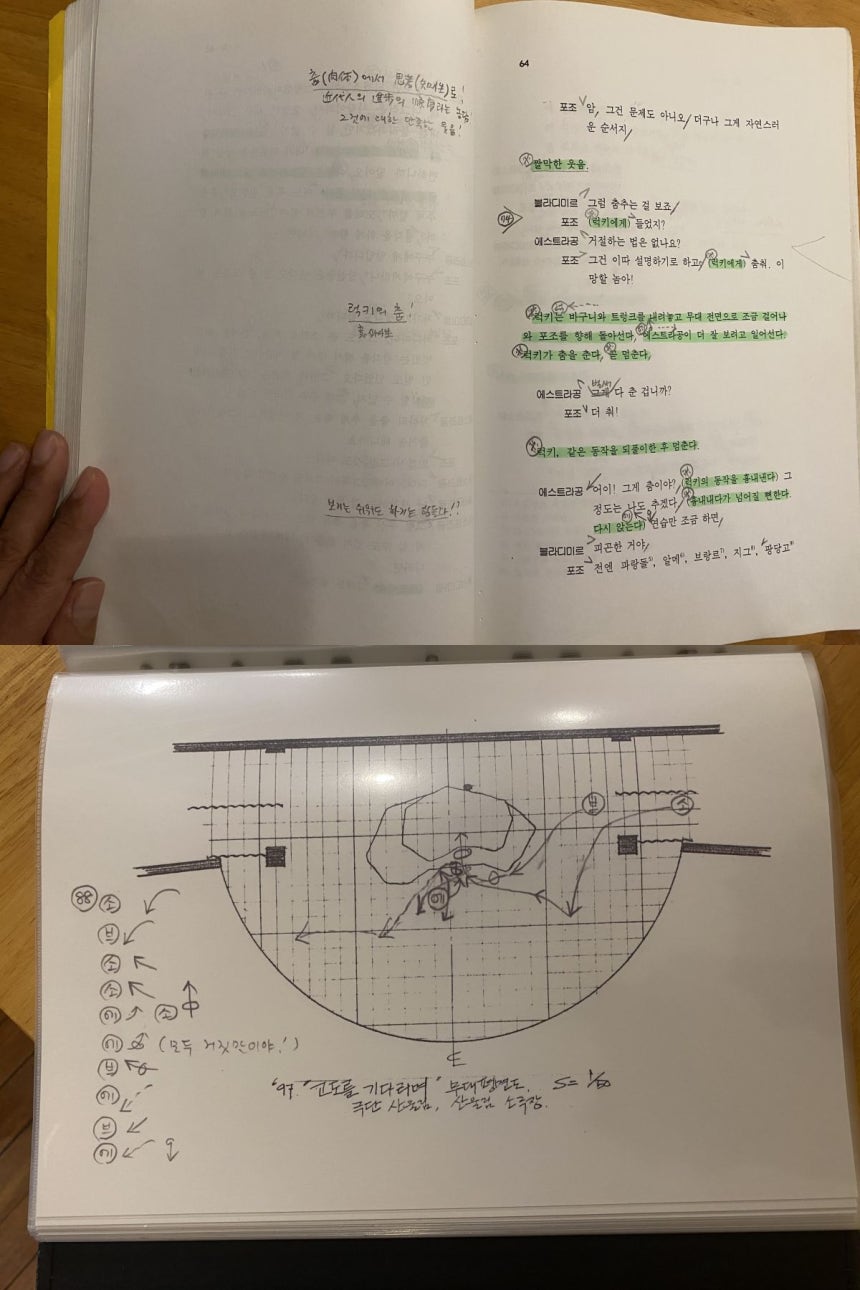 춤(肉体)에서 思考(知的生)로!
近代人의 進步의 順序라는 농담
그것에 대한 만족한 웃음!
럭키의 춤!
보기는 쉬워도 하기는 힘들다!?
64
포조 암, 그건 문제도 아니오, 더구나 그게 자연스러
운 순서지,
짤막한 웃음.
블라디미르 그럼 춤추는 걸 보죠,
74
포조 (럭키에게) 들었지?
에스트라공 거절하는 법은 없나요?
포조 그건 이따 설명하기로 하고, (럭키에게) 춤춰. 이
망할 놈아!
럭키는 바구니와 트렁크를 내려놓고 무대 전면으로 조금 걸어나
와 포조를 향해 돌아선다, 에스트라공이 더 잘 보려고 일어선다.
럭키가 춤을 춘다, 곧 멈춘다,
벌써
에스트라공 그게 다 춘 겁니까?
포조 더 춰!
럭키, 같은 동작을 되풀이한 후 멈춘다.
에스트라공 어이! 그게 춤이야? (럭키의 동작을 흉내낸다) 그
정도는 나도 추겠다, (흉내내다가 넘어질 뻔한다.
다시 앉는다) 연습만 조금 하면,
블라디미르 피곤한 거야,
포조 전엔 파랑돌⁵⁾, 알메⁶⁾, 브랑르⁷⁾, 지그⁸⁾, 팡당고⁹⁾
블
소
에
88 소
브
소
소
에 소
에 (모두 거짓말이야!)
브
에
브
에
'97. "고도를 기다리며" 무대평면도. S=1/50
극단 산울림, 산울림 소극장.